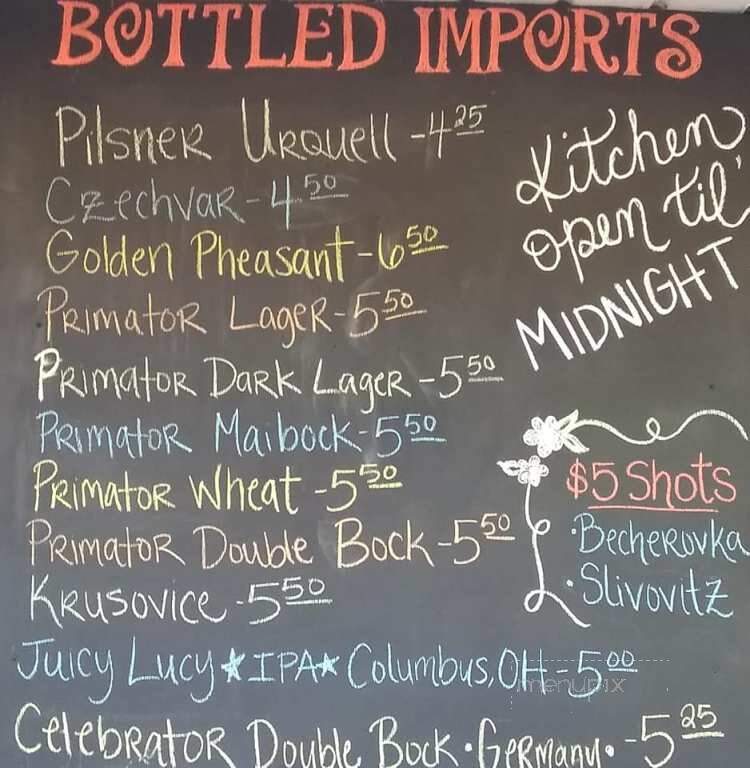 BOTTLED IMPORTS
Pilsner Urquell - 4 25
Czechvar - 4 50
Golden Pheasant - 6 50
Primator Lager - 5 50
Primator Dark Lager - 5 50
Primator Maibock - 5 50
Primator Wheat - 5 50
Primator Double Bock - 5 50
Krusovice - 5 50
Juicy Lucy ★ IPA ★ Columbus, OH - 5 00
Celebrator Double Bock • Germany • - 5 25
Kitchen
open til'
MIDNIGHT
$5 Shots
• Becherovka
• Slivovitz
menupix